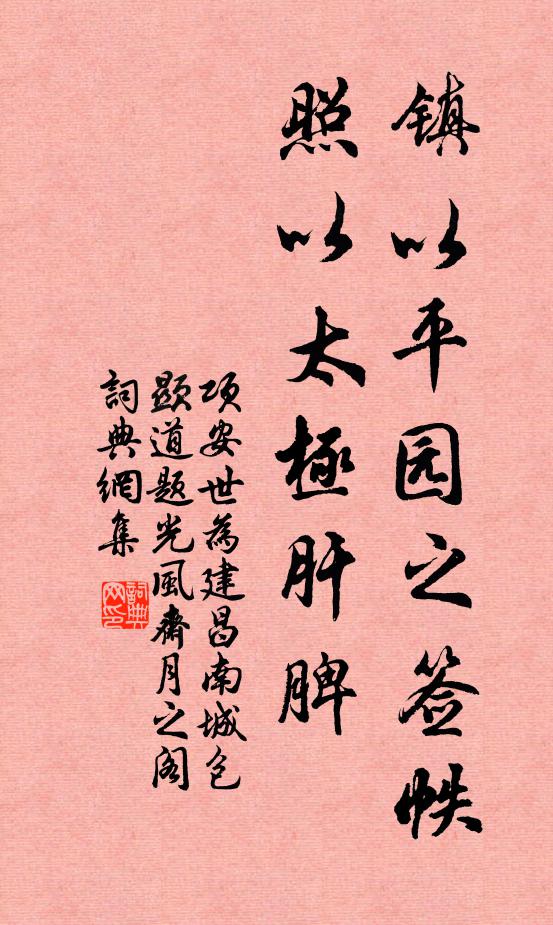 镇以平园之签帙
照以太極肝脾
项安世為建昌南城包
顕道题光風齋月之阁
詞典網集
詞典网印